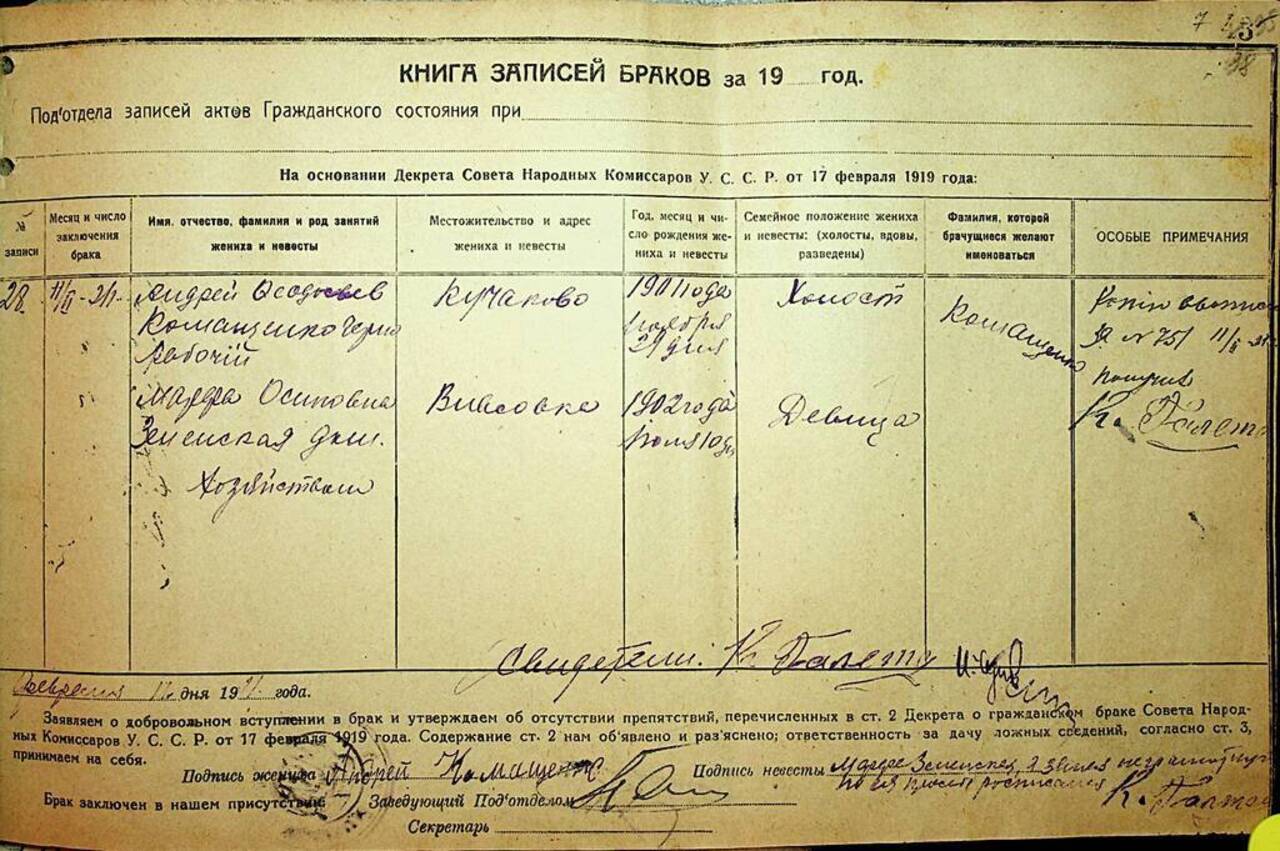 КНИГА ЗАПИСЕЙ БРАКОВ за 19 год.
Под'отдела записей актов Гражданского состояния при
На основании Декрета Совета Народных Комиссаров У. С. С. Р. от 17 февраля 1919 года:
№ записи
Месяц и число заключения брака
Имя, отчество, фамилия и род занятий жениха и невесты
Местожительство и адрес жениха и невесты
Год, месяц и число рождения жениха и невесты
Семейное положение жениха и невесты: (холосты, вдовы, разведены)
Фамилия, которой брачущиеся желают именоваться
ОСОБЫЕ ПРИМЕЧАНИЯ
28. 11/II - 21 Андрей Кучаково 1901 года Холост
Комащенко Черно ноября Комащенко № 751 11/II
рабочій 29 дня
получив
Марфа Осиповна 1902 года Девица К. Палета
Земенская дом. июля 10
Хозяйством
Свидетели: К. Палета
Февраля дня 1921 года.
Заявляем о добровольном вступлении в брак и утверждаем об отсутствии препятствий, перечисленных в ст. 2 Декрета о гражданском браке Совета Народ-
ных Комиссаров У. С. С. Р. от 17 февраля 1919 года. Содержание ст. 2 нам об'явлено и раз'яснено; ответственность за дачу ложных сведений, согласно ст. 3,
принимаем на себя.
Подпись жениха Андрей Комащенко Подпись невесты Марфа Земенская неграмотную
по ея просьбе росписался К. Палета
Брак заключен в нашем присутствие: Заведующий Под'отделом
Секретарь